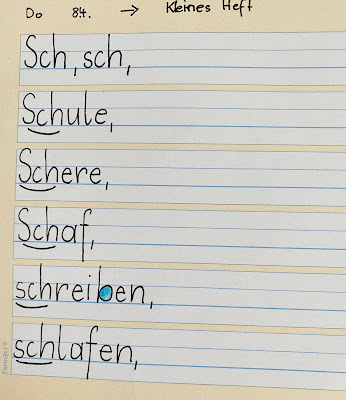 Do 8.4. → Kleines Heft
Sch, sch,
Schule,
Schere,
Schaf,
schreiben,
schlafen,